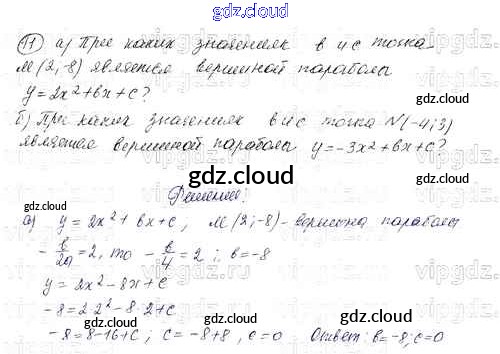 gdz.cloud
gdz.cloud
11 а) При каких значениях в и с точка
М(2;-8) является вершиной параболы
y=2x²+bx+c?
gdz.cloud
б) При каких значениях в и с точка N(-4;3)
является вершиной параболы y=-3x²+bx+c?
gdz.cloud
Решение:
gdz.cloud
а) y=2x²+bx+c; М(2;-8)-вершина параболы
-b/2a=2, то -b/4=2; b=-8
y=2x²-8x+c
-8=2·2²-8·2+c
-8=8-16+c; c=-8+8, c=0 Ответ: b=-8; c=0
gdz.cloud
gdz.cloud